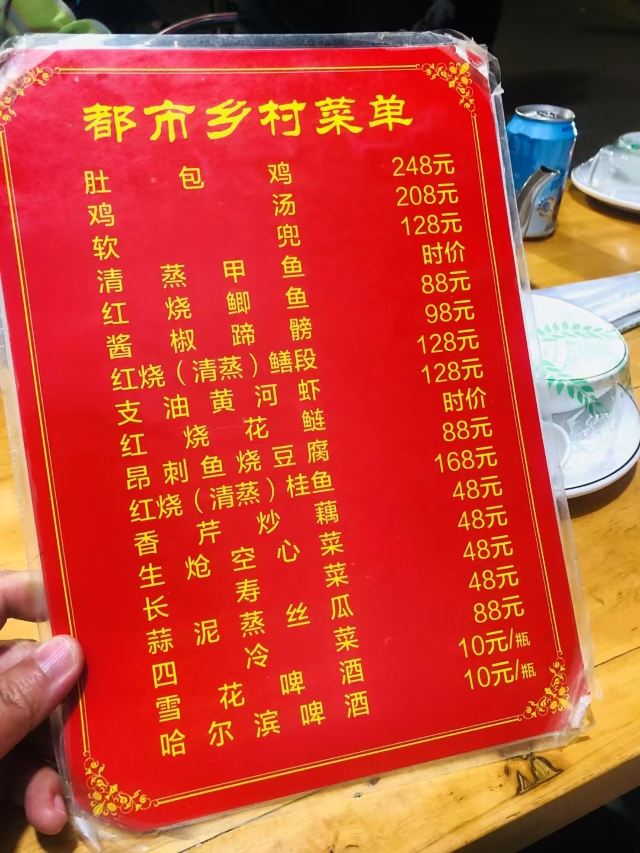 都市乡村菜单
肚包鸡 248元
鸡汤 208元
软兜 128元
清蒸甲鱼 时价
红烧鲫鱼 88元
酱椒蹄髈 98元
红烧（清蒸）鳝段 128元
支油黄河虾 128元
红烧花鲢 时价
昂刺鱼烧豆腐 88元
红烧（清蒸）桂鱼 168元
香芹炒藕 48元
生炝空心菜 48元
长寿菜 48元
蒜泥蒸丝瓜 48元
四冷菜 88元
雪花啤酒 10元/瓶
哈尔滨啤酒 10元/瓶